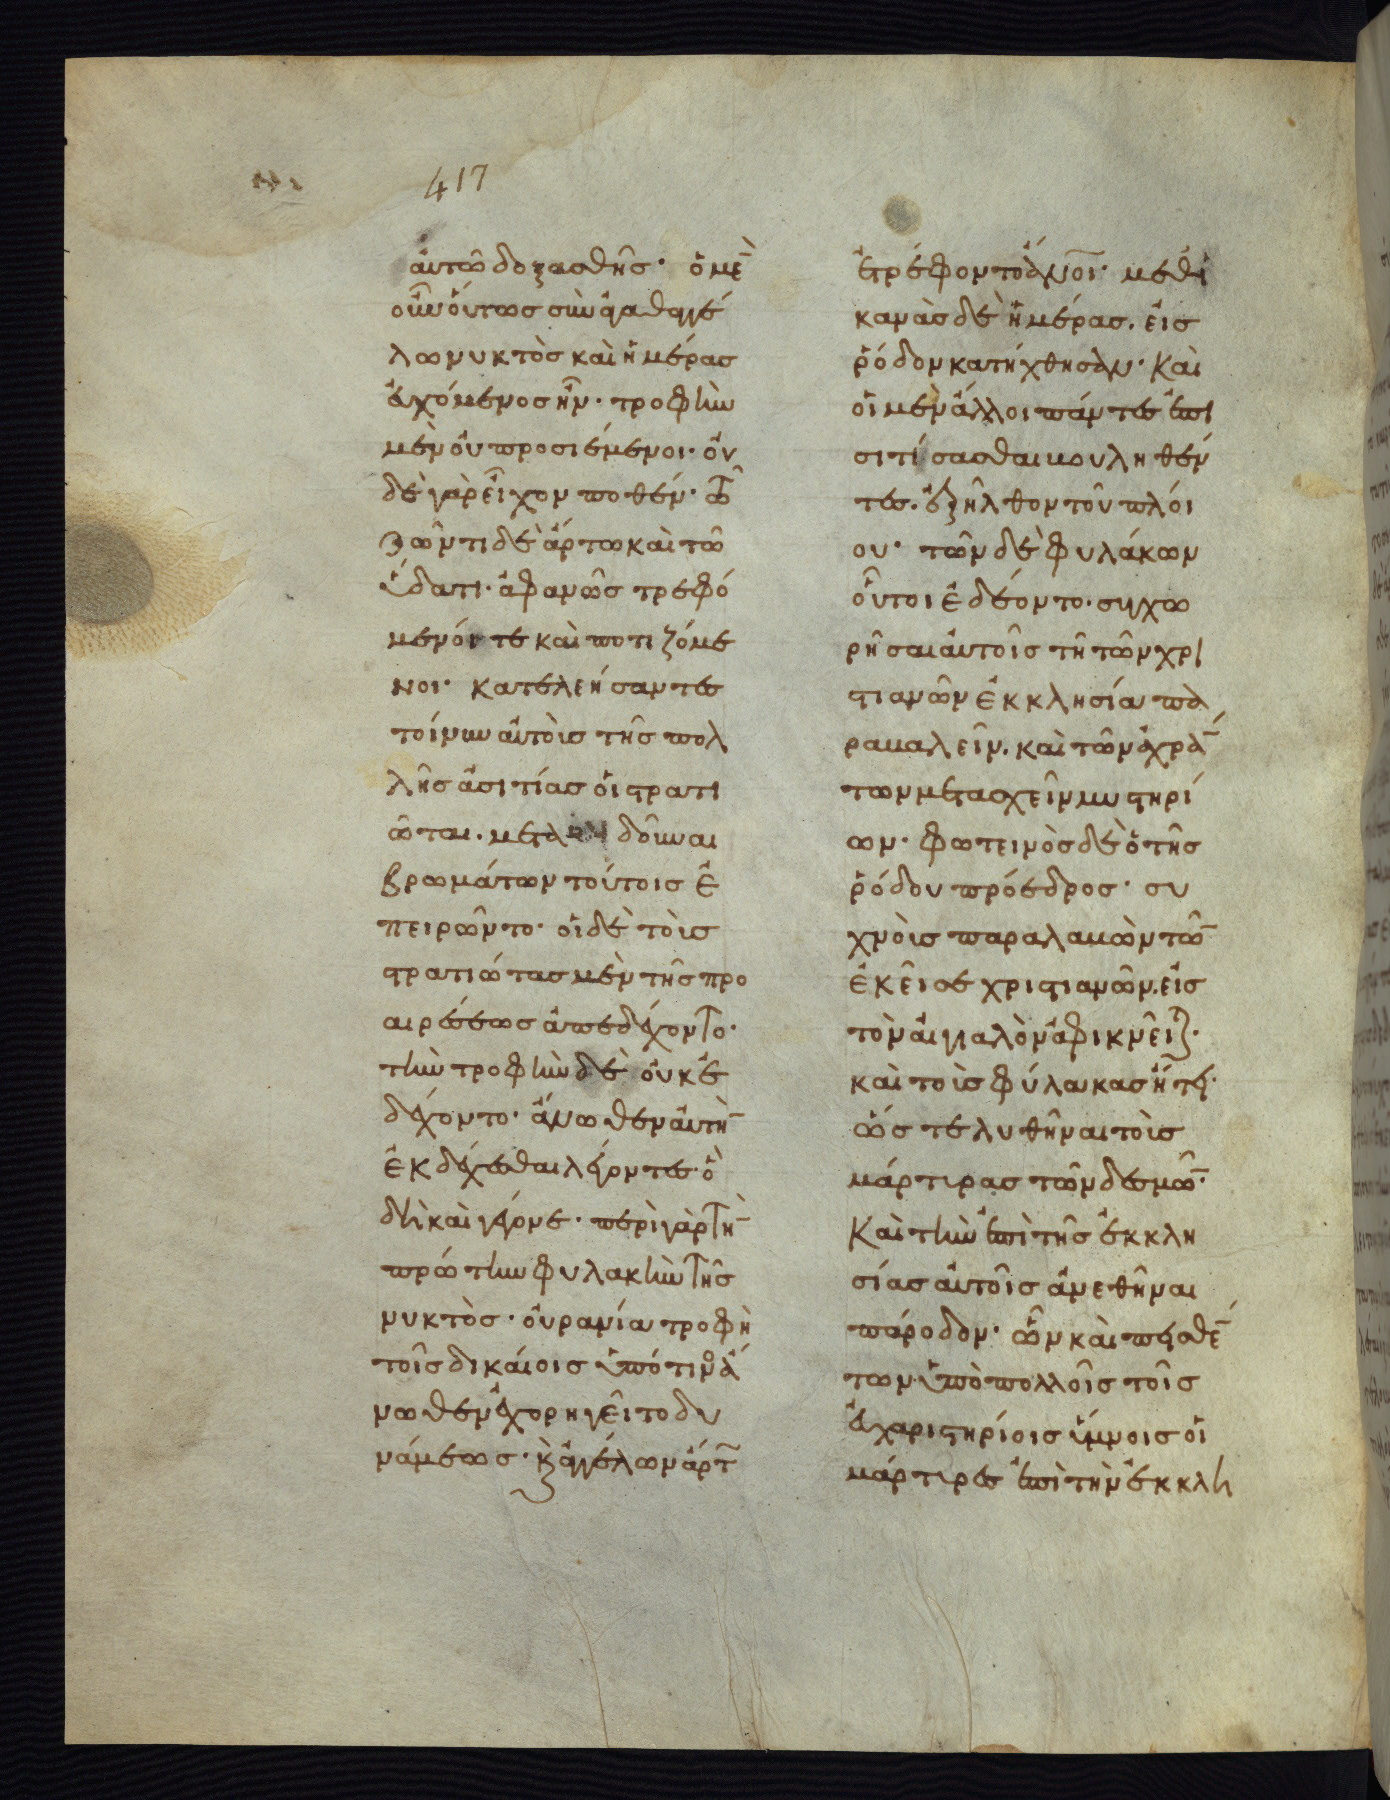 417
αὐτῶ δοξασθῆς· ὁ μὲ̅
οὖν οὕτως σὺν ἀγαθαγγέ
λω νυκτὸς καὶ ἡμέρας
ἐχόμενος ἦν· τροφὴν
μὲν οὐ προσιέμενοι· οὐ
δὲ γὰρ εἶχον ποθέν· τῶ
ζῶντι δὲ ἄρτω καὶ τῶ
ὕδατι· ἀφανῶς τρεφό
μενόι τε καὶ ποτιζόμε
νοι· κατελεήσαντες
τοίνυν αὐτοὺς τῆς πολ
λῆς ἀσιτίας οἱ στρατι
ῶται. μετα δοῦναι
βρωμάτων τούτοις ἐ
πειρῶντο· οἱ δὲ τοὺς
στρατιώτας μὲν τῆς προ
αιρέσεως ἀπεδέχοντο·
τὴν τροφὴν δὲ οὐκ ἐ
δέχοντο· ἄνωθεν αὐτὴ̅
ἐκδέχεσθαι λέγοντες· ὃ
δὴ καὶ γέγονε· περὶ γὰρ τὴ̅
πρώτην φυλακὴν τῆς
νυκτὸς· οὐρανία τροφὴ
τοῖς δικαίοις ὑπό τινο ἄ
νωθεν ἐχορηγεῖτο δυ
νάμεως· κ ἀγγέλων ἄρτ̅
ἐτρέφοντο ἄνοι̅· μεθ ἱ
κανὰς δὲ ἡμέρας. εἰς
ῥόδον κατήχθησαν· Καὶ
οἱ μὲν ἄλλοι πάντες ἐπι
σιτίσασθαι βουληθέν
τες. ἐξῆλθον τοῦ πλοί
ου· τῶν δὲ φυλάκων
οὗτοι ἐδέοντο. συγχω
ρῆσαι αὐτοῖς τῆ τῶν χρι
στιανῶν ἐκκλησία πα
ραβαλεῖν. καὶ τῶν ἀχρά̅
των μετασχεῖν μυστηρί
ων· φωτεινὸς δὲ ὁ τῆς
ῥόδου πρόεδρος· συ
χνοὺς παραλαβὼν τῶ̅
ἐκεῖσε χριστιανῶν. εἰς
τὸν αἰγιαλὸν ἀφικνεῖτ·
καὶ τοὺς φύλακας ἤτει·
ὥς τε λυθῆναι τοὺς
μάρτυρας τῶν δεσμῶ̅·
Καὶ τὴν ἐπὶ τῆς ἐκκλη
σίας αὐτοῖς ἀνεθῆναι
πάροδον· ὧν καὶ πεσθέ̅
των. ὑπὸ πολλοῖς τοῖς
εὐχαριστηρίοις ὕμνοις οἱ
μάρτυρες ἐπὶ τὴν ἐκκλη